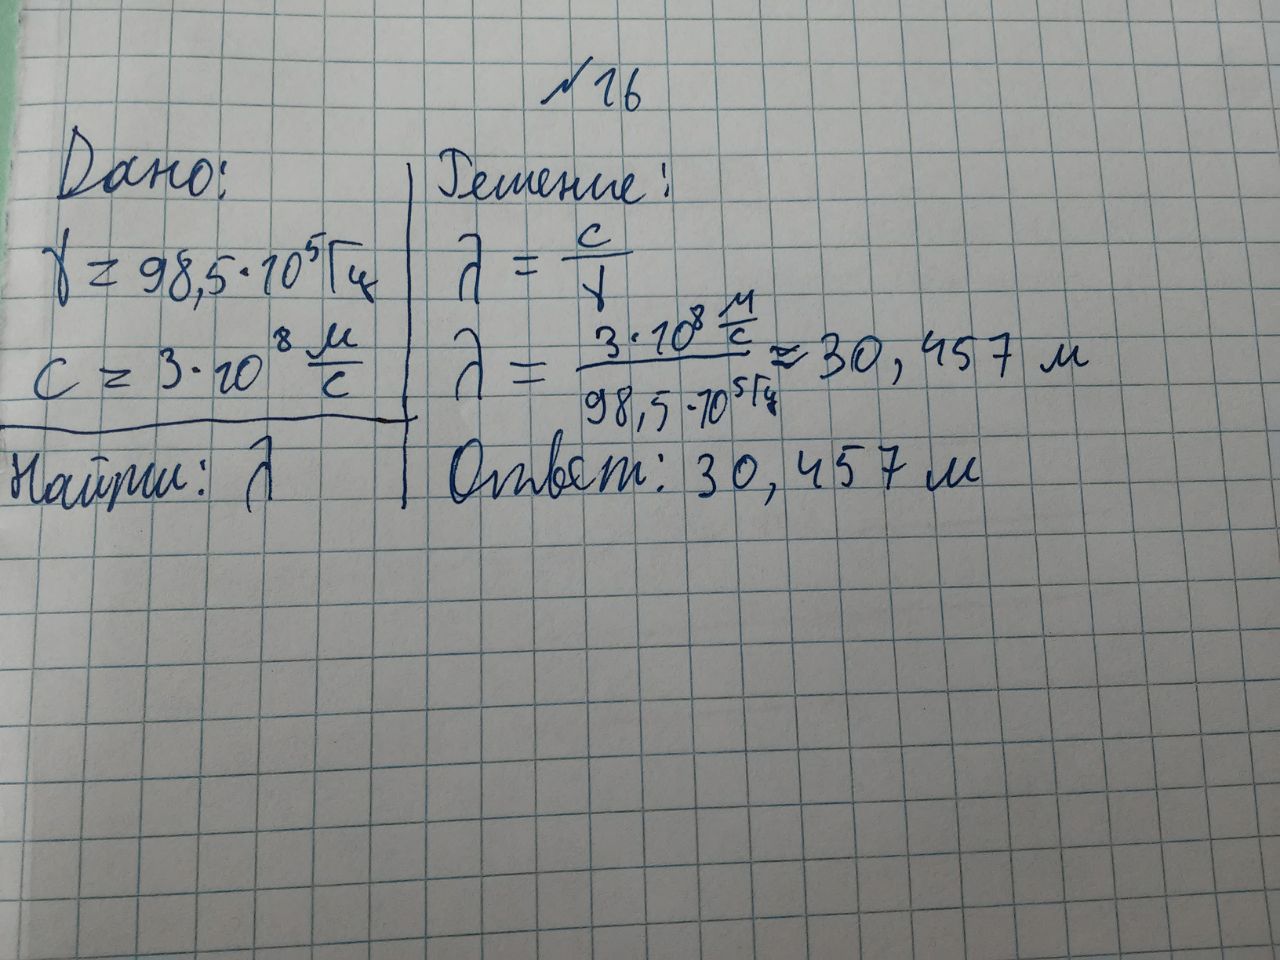 №16
Дано:
γ = 98,5·10⁵ Гц
c = 3·10⁸ м/с
Найти: λ
Решение:
λ = c/γ
λ = 3·10⁸ м/с / 98,5·10⁵ Гц ≈ 30,457 м
Ответ: 30,457 м